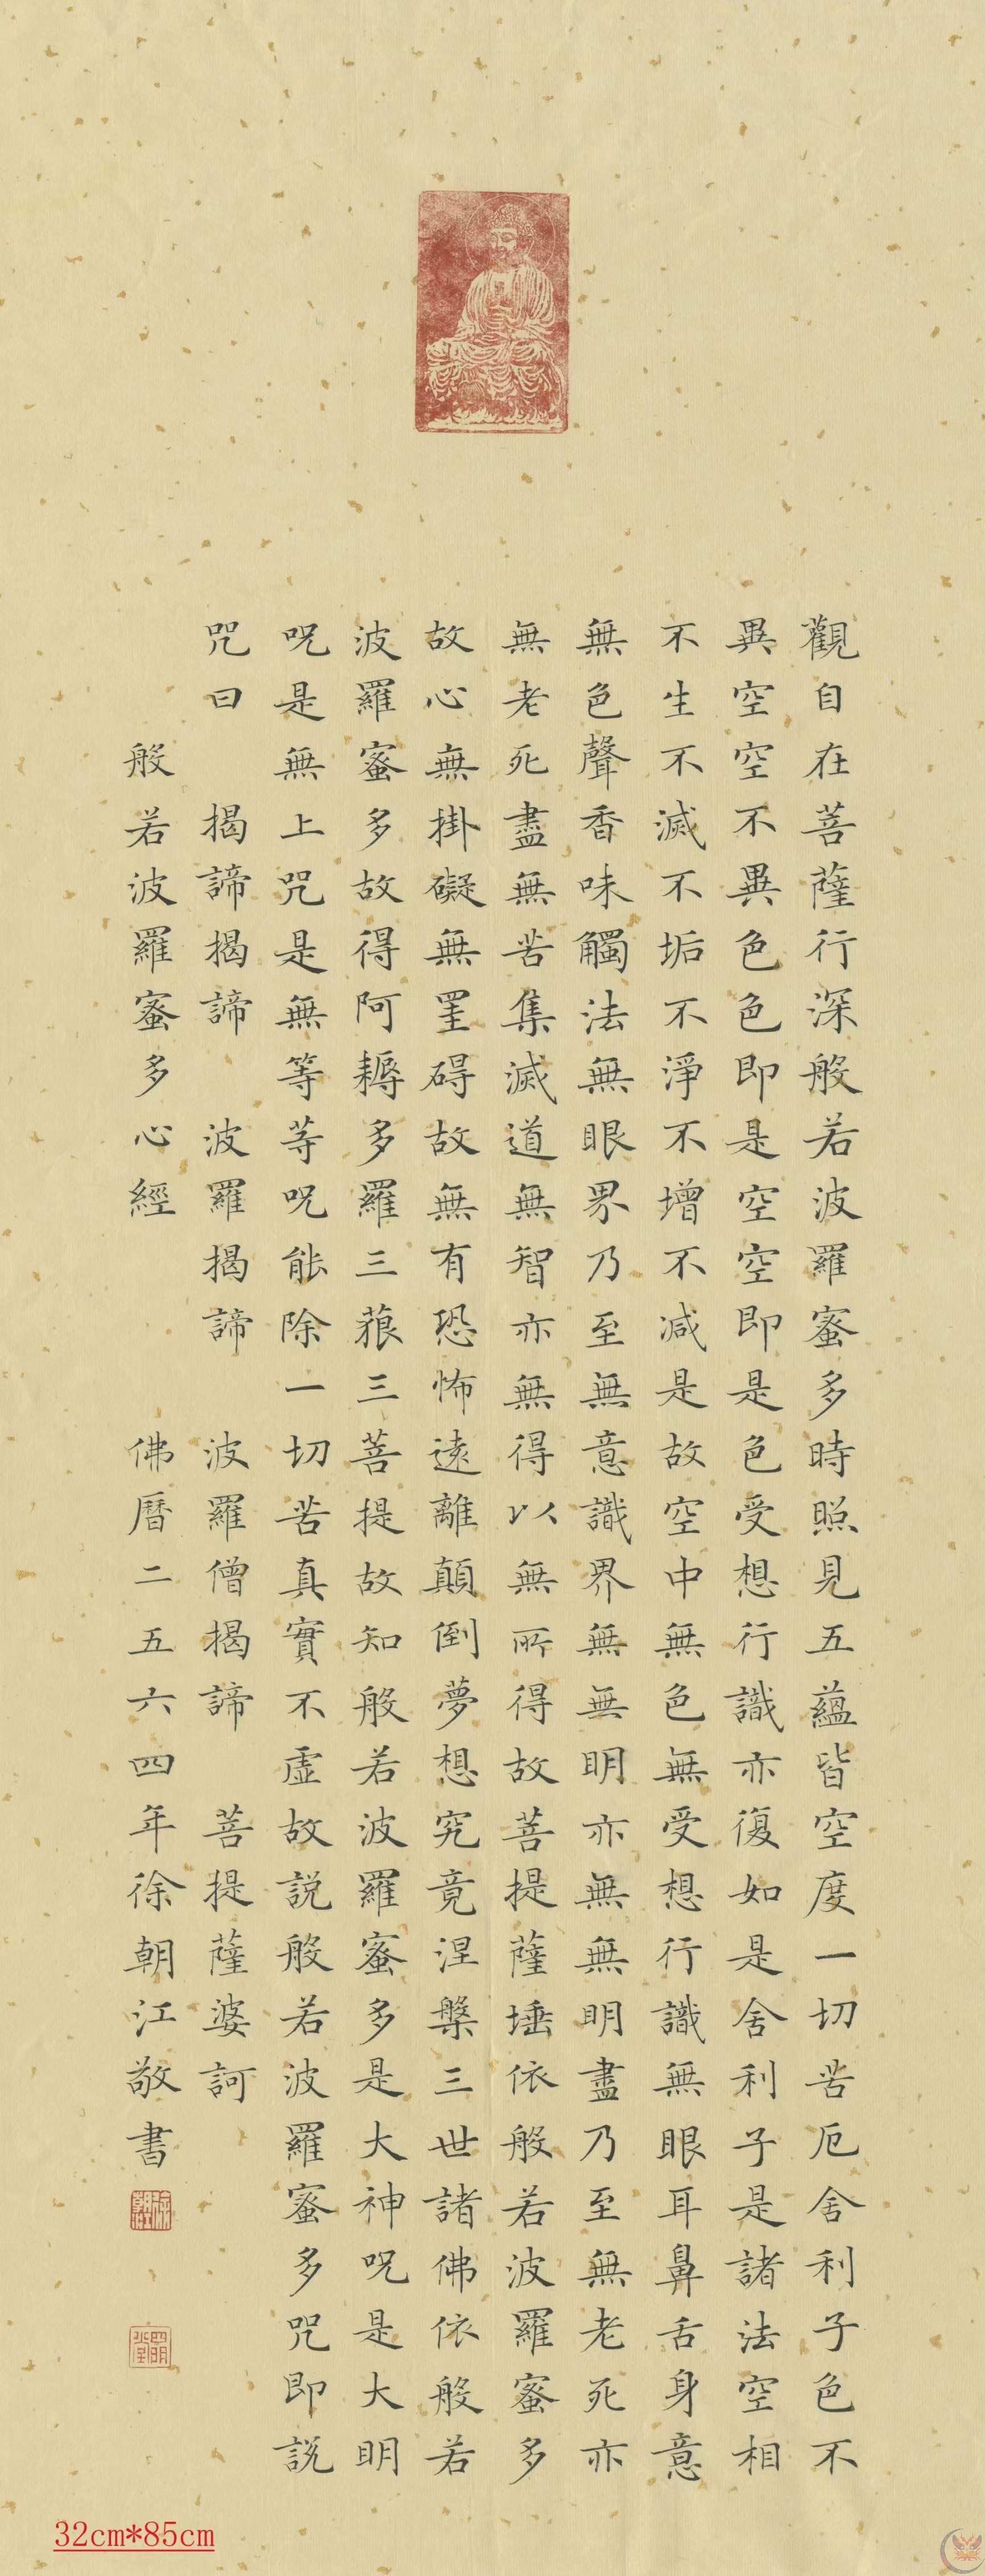 觀自在菩薩行深般若波羅蜜多時照見五蘊皆空度一切苦厄舍利子色不
異空空不異色色即是空空即是色受想行識亦復如是舍利子是諸法空相
不生不滅不垢不淨不增不減是故空中無色無受想行識無眼耳鼻舌身意
無色聲香味觸法無眼界乃至無意識界無無明亦無無明盡乃至無老死亦
無老死盡無苦集滅道無智亦無得以無所得故菩提薩埵依般若波羅蜜多
故心無掛礙無罣碍故無有恐怖遠離顛倒夢想究竟涅槃三世諸佛依般若
波羅蜜多故得阿耨多羅三藐三菩提故知般若波羅蜜多是大神呪是大明
呪是無上咒是無等等呪能除一切苦真實不虛故說般若波羅蜜多咒即說
咒曰 揭諦揭諦 波羅揭諦 波羅僧揭諦 菩提薩婆訶
般若波羅蜜多心經 佛曆二五六四年徐朝江敬書
32cm*85cm